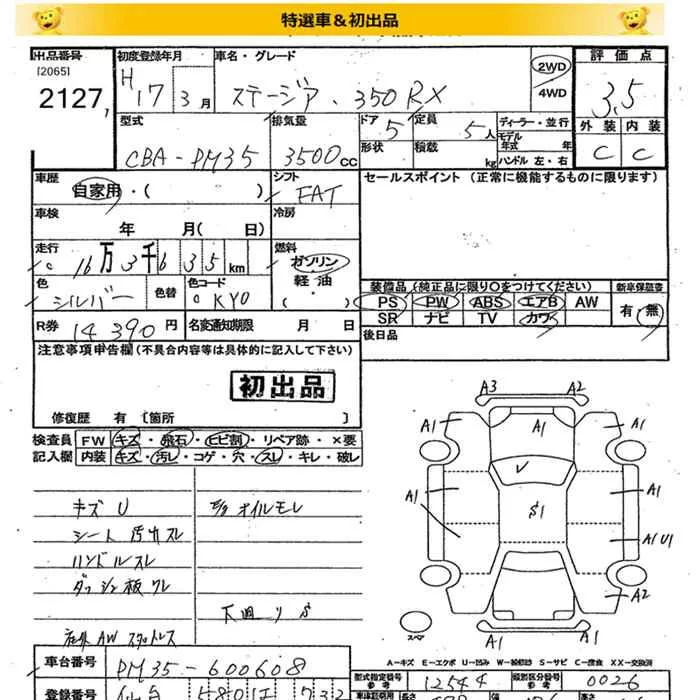 特選車＆初出品
出品番号
[2065]
2127
初度登録年月
H17 3月
車名・グレード
ステージア・350RX
2WD
4WD
評価点
3.5
外装 内装
C C
型式
CBA-PM35
排気量
3500cc
ドア 5
形状
定員 5人
積載 kg
ディーラー・並行
モデル年式 年
ハンドル 左・右
車歴
自家用・( )
シフト
FAT
セールスポイント (正常に機能するものに限ります)
車検
年 月( 日)
冷房
走行
16万3千635km
燃料
ガソリン
軽油
・( )
色
シルバー
色替
色コード
KY0
装備品 (純正品に限り○をつけてください)
新車保証書
PS PW ABS エアB AW
SR ナビ TV カワ
有・無
R券 14390円
名変通知期限 月 日
後日品
注意事項申告欄 (不具合内容等は具体的に記入して下さい)
初出品
修復歴 有 [箇所 ]
検査員記入欄
FW キズ・飛石・ヒビ割・リペア跡・×要
内装 キズ・汚レ・コゲ・穴・スレ・キレ・破レ
キズ U
シート 汚レスレ
ハンドルスレ
ダッシュ板ワレ
オイルモレ
下廻りS
AW スタットレス
A3 A2
A1 A1 A1
A1 S1 A1
A1U1
A2
A1 A1
スペア
A-キズ E-エクボ U-凹み W-補修跡 S-サビ C-腐食 XX-交換済
車台番号
PM35-600608
型式指定番号
参考
12544
類別区分番号
参考
0026
登録番号
仙台 580